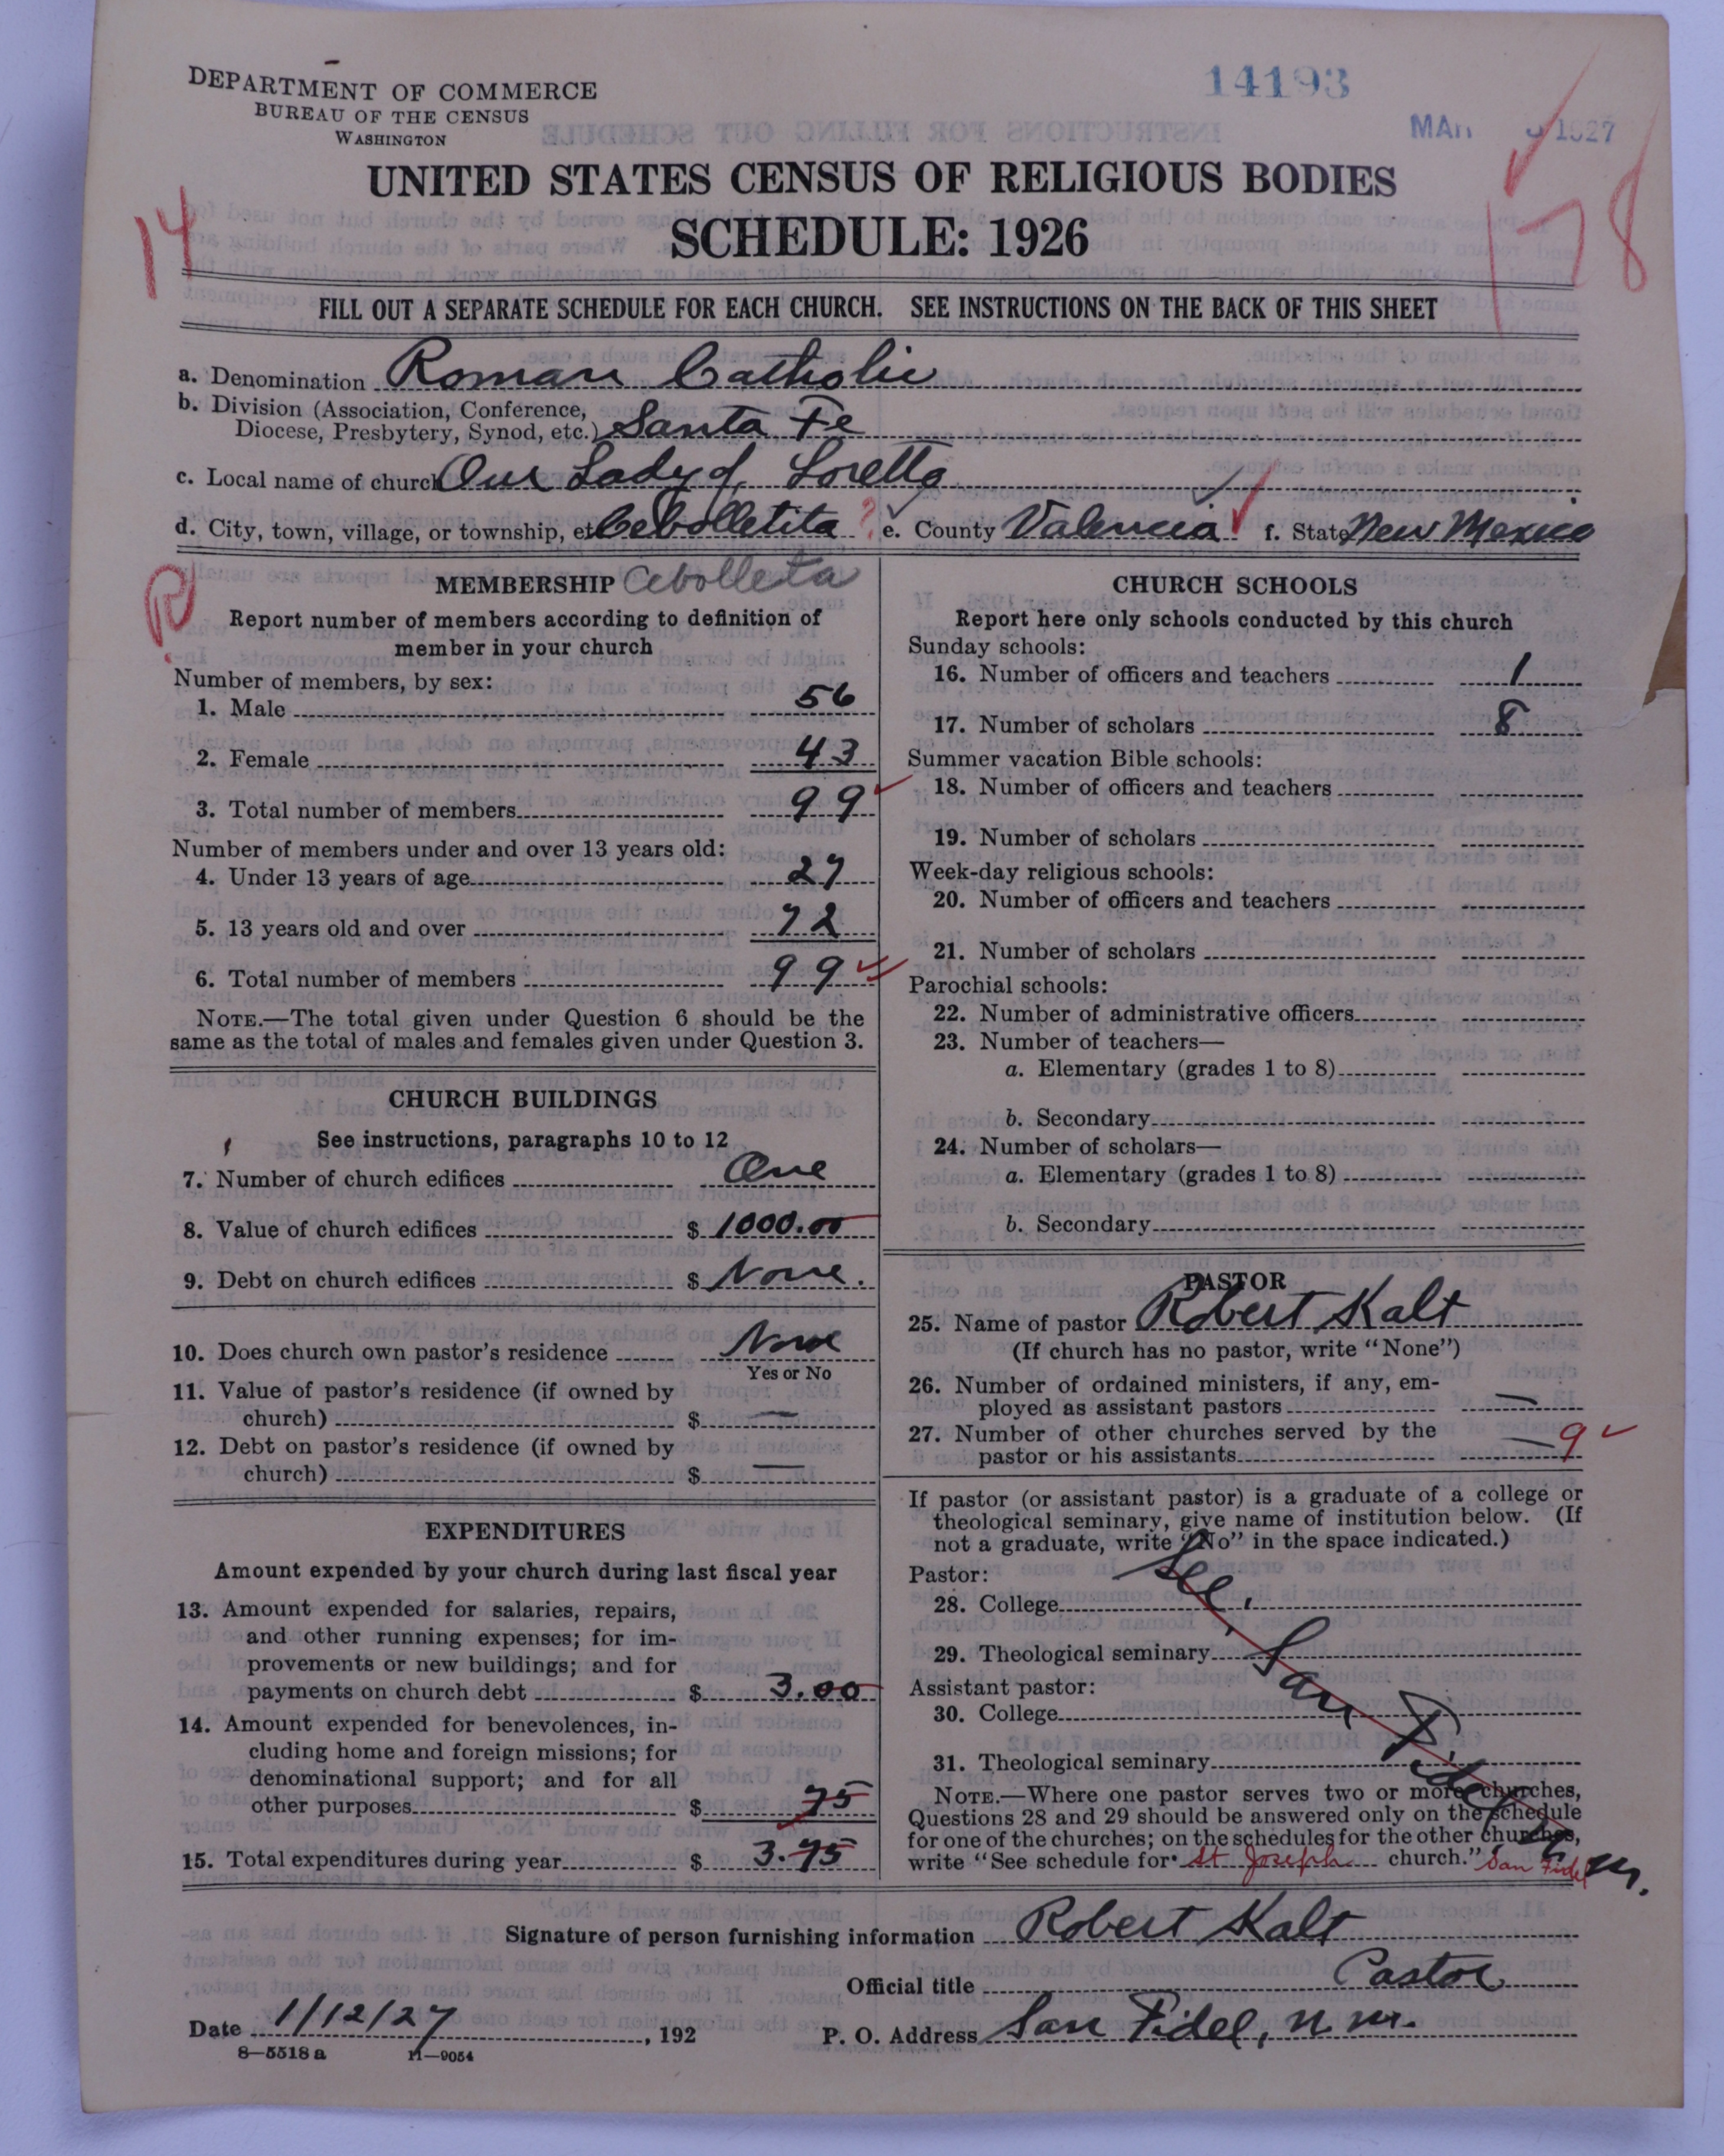 DEPARTMENT OF COMMERCE
BUREAU OF THE CENSUS
WASHINGTON
14193
1927
UNITED STATES CENSUS OF RELIGIOUS BODIES
SCHEDULE: 1926
14
178
FILL OUT A SEPARATE SCHEDULE FOR EACH CHURCH. SEE INSTRUCTIONS ON THE BACK OF THIS SHEET
a. Denomination Roman Catholic
b. Division (Association, Conference, Diocese, Presbytery, Synod, etc.) Santa Fe
c. Local name of church Our Lady of Loretto
d. City, town, village, or township, etc Cebolletita ? e. County Valencia f. State New Mexico
R
MEMBERSHIP Cebolleta
Report number of members according to definition of
member in your church
Number of members, by sex:
1. Male 56
2. Female 43
3. Total number of members 99
Number of members under and over 13 years old:
4. Under 13 years of age 27
5. 13 years old and over 72
6. Total number of members 99
NOTE.—The total given under Question 6 should be the
same as the total of males and females given under Question 3.
CHURCH BUILDINGS
See instructions, paragraphs 10 to 12
7. Number of church edifices One
8. Value of church edifices $ 1000.00
9. Debt on church edifices $ None.
10. Does church own pastor's residence None
Yes or No
11. Value of pastor's residence (if owned by
church) $ —
12. Debt on pastor's residence (if owned by
church) $ —
EXPENDITURES
Amount expended by your church during last fiscal year
13. Amount expended for salaries, repairs,
and other running expenses; for im-
provements or new buildings; and for
payments on church debt $ 3.00
14. Amount expended for benevolences, in-
cluding home and foreign missions; for
denominational support; and for all
other purposes $ 75
15. Total expenditures during year $ 3.75
CHURCH SCHOOLS
Report here only schools conducted by this church
Sunday schools:
16. Number of officers and teachers 1
17. Number of scholars 8
Summer vacation Bible schools:
18. Number of officers and teachers
19. Number of scholars
Week-day religious schools:
20. Number of officers and teachers
21. Number of scholars
Parochial schools:
22. Number of administrative officers
23. Number of teachers—
a. Elementary (grades 1 to 8)
b. Secondary
24. Number of scholars—
a. Elementary (grades 1 to 8)
b. Secondary
PASTOR
25. Name of pastor Robert Kalt
(If church has no pastor, write "None")
26. Number of ordained ministers, if any, em-
ployed as assistant pastors —
27. Number of other churches served by the
pastor or his assistants — 9
If pastor (or assistant pastor) is a graduate of a college or
theological seminary, give name of institution below. (If
not a graduate, write "No" in the space indicated.)
Pastor:
28. College
29. Theological seminary
Assistant pastor:
30. College
31. Theological seminary
See San Fidel, N. M.
NOTE.—Where one pastor serves two or more churches,
Questions 28 and 29 should be answered only on the schedule
for one of the churches; on the schedules for the other churches,
write "See schedule for St Joseph church." San Fidel
Signature of person furnishing information Robert Kalt
Official title Pastor
Date 1/12/27, 192 P. O. Address San Fidel, N. M.
8—5518 a 11—9054